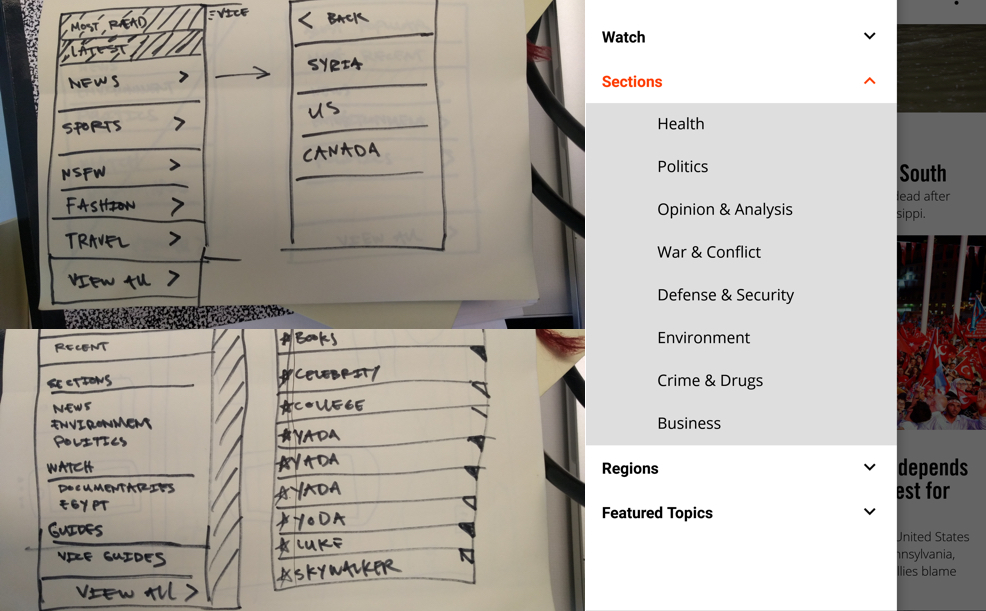 MOST READ
LATEST
NEWS
SPORTS
NSFW
FASHION
TRAVEL
VIEW ALL
VICE
BACK
SYRIA
US
CANADA
RECENT
SECTIONS
NEWS
ENVIRONMENT
POLITICS
WATCH
DOCUMENTARIES
EGYPT
GUIDES
VICE GUIDES
VIEW ALL
BOOKS
CELEBRITY
COLLEGE
YADA
YADA
YADA
YODA
LUKE
SKYWALKER
Watch
Sections
Health
Politics
Opinion & Analysis
War & Conflict
Defense & Security
Environment
Crime & Drugs
Business
Regions
Featured Topics
South
dead after
depends
est for
United States
lies blame